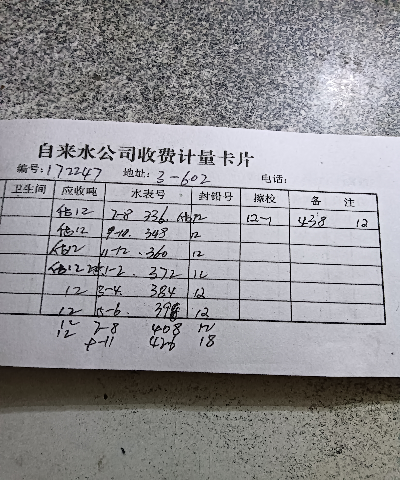 自来水公司收费计量卡片
编号:172247 地址: 3-602 电话:
卫生间 应收吨 水表号 封铅号 擦校 备 注
估12 7-8 336 估12 12-1 438 12
估12 9-10. 348 12
估12 11-12. 360 12
估12 1-2. 372 12
12 3-4. 384 12
12 5-6. 396 12
12 7-8 408 12
12 9-11 426 18